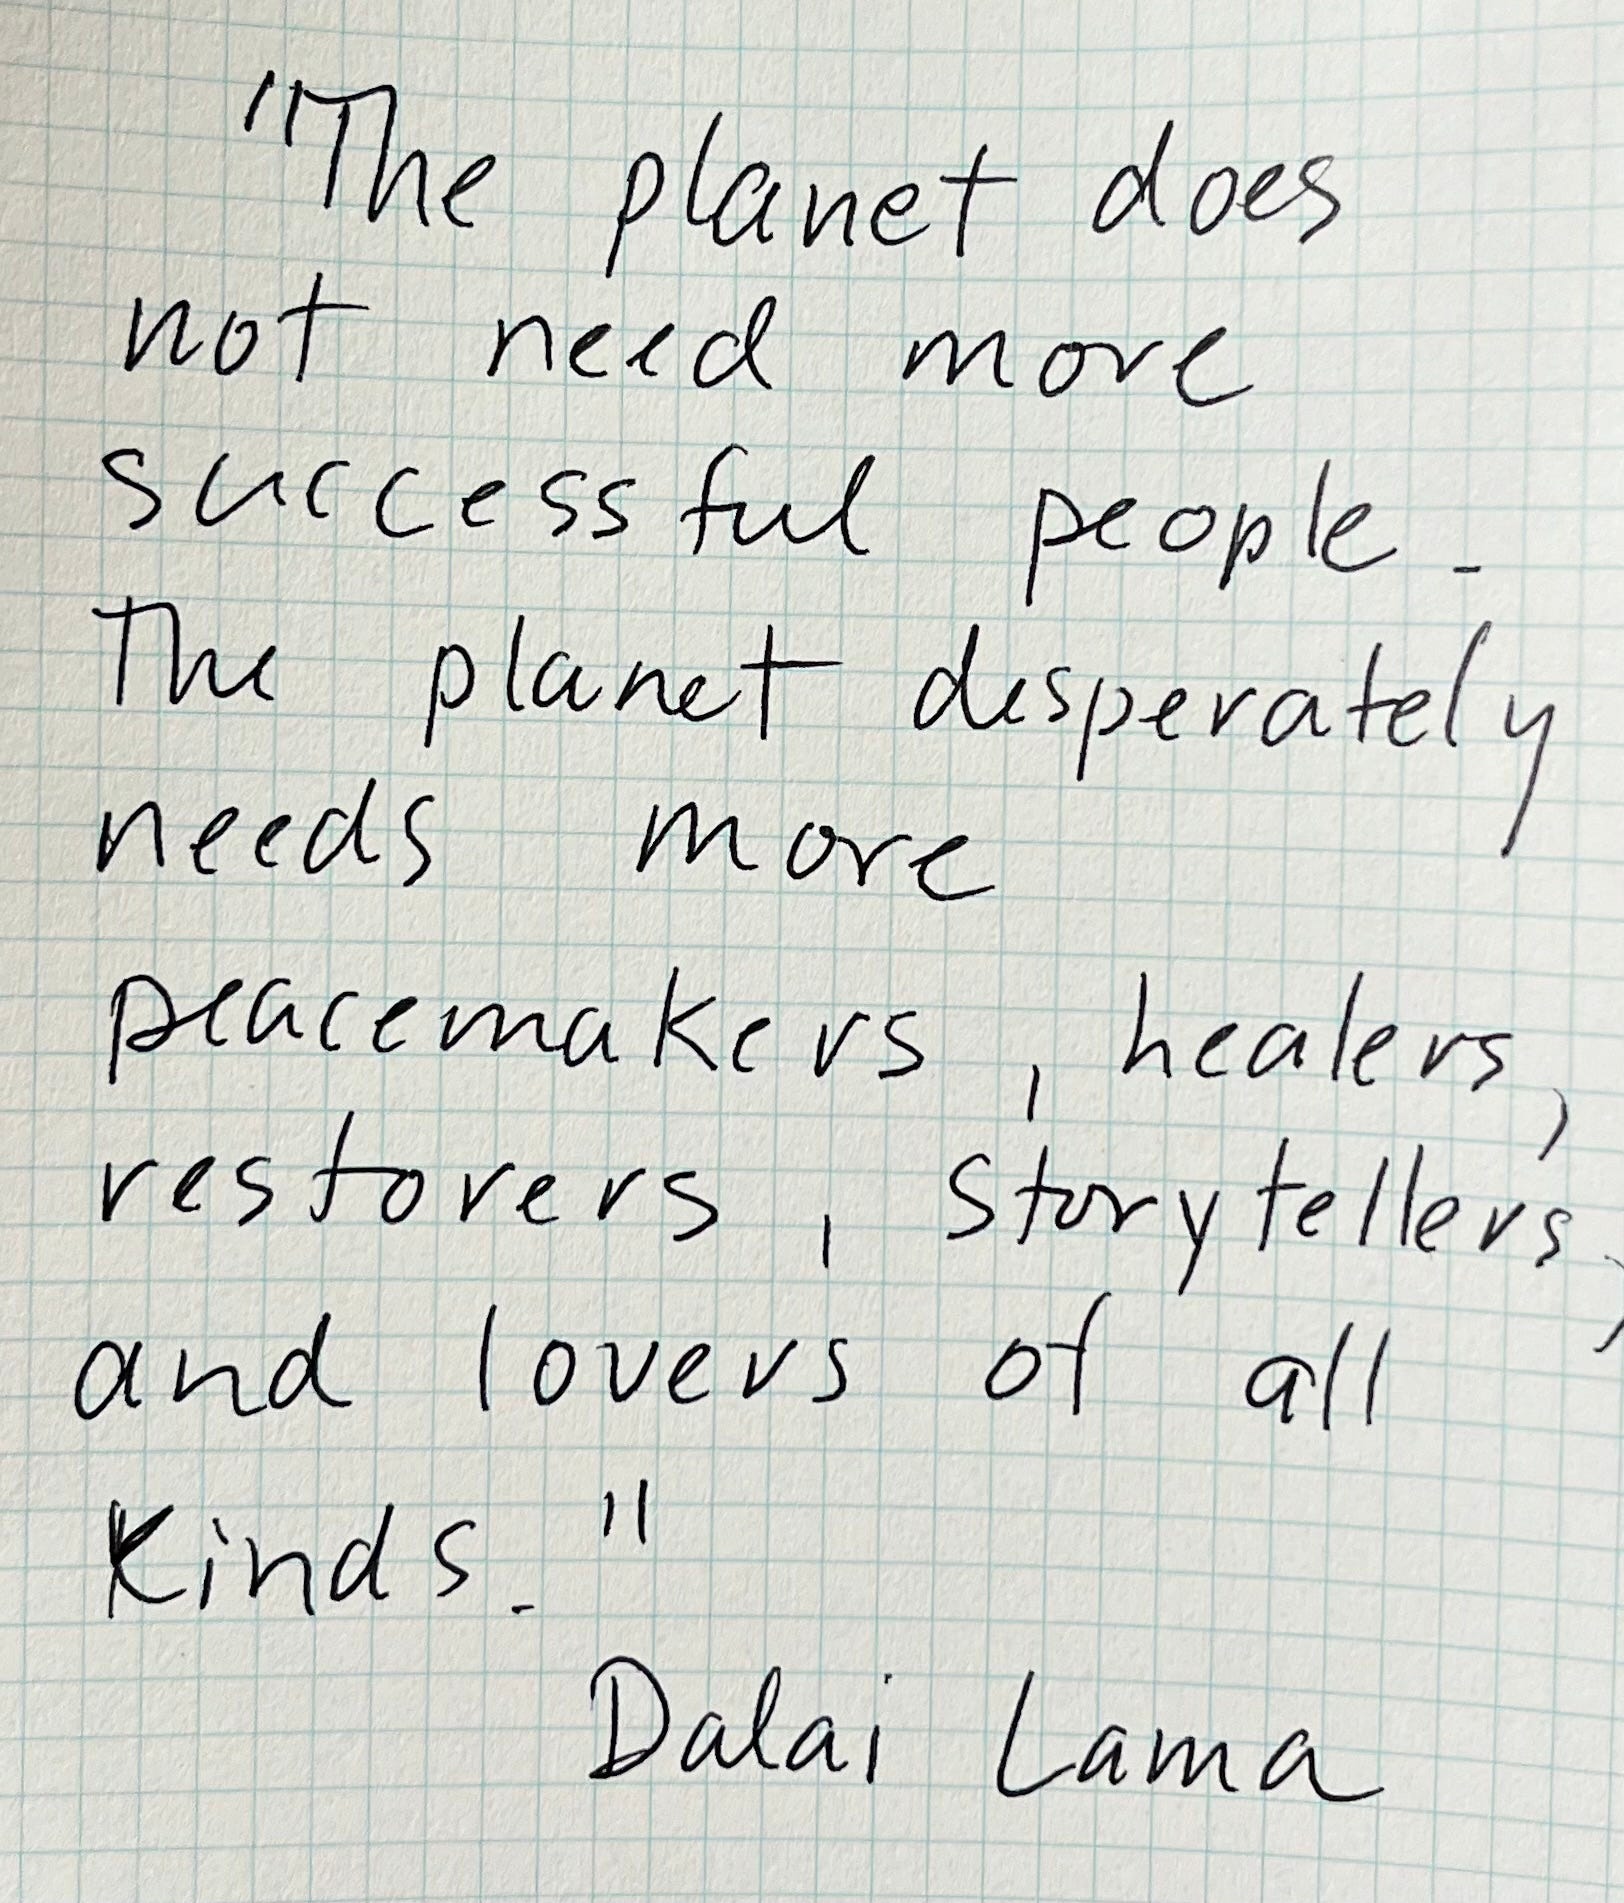 "The planet does
not need more
successful people.
The planet desperately
needs more
peacemakers, healers,
restorers, storytellers,
and lovers of all
kinds."
Dalai Lama